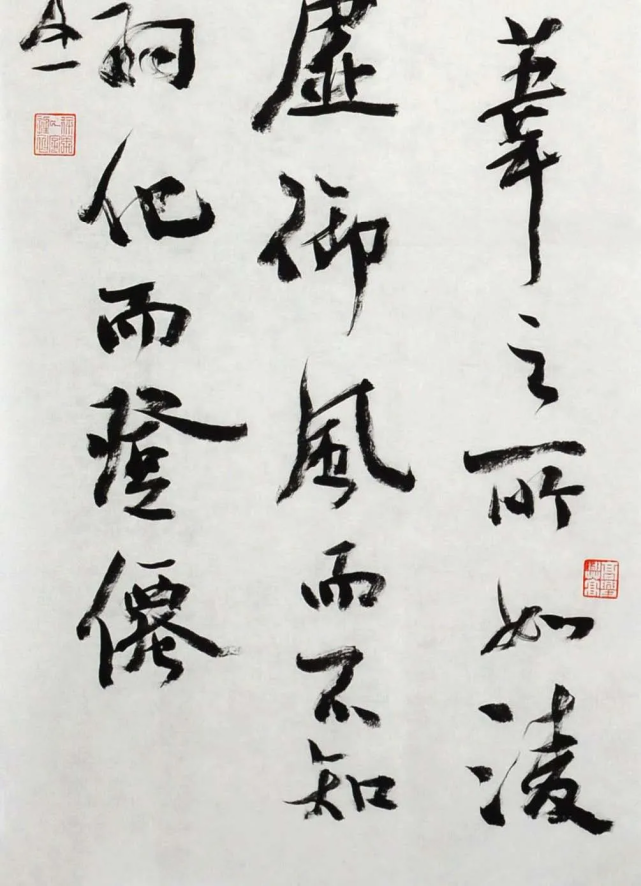 葦之所如淩
虛御風而不知
羽化而登僊